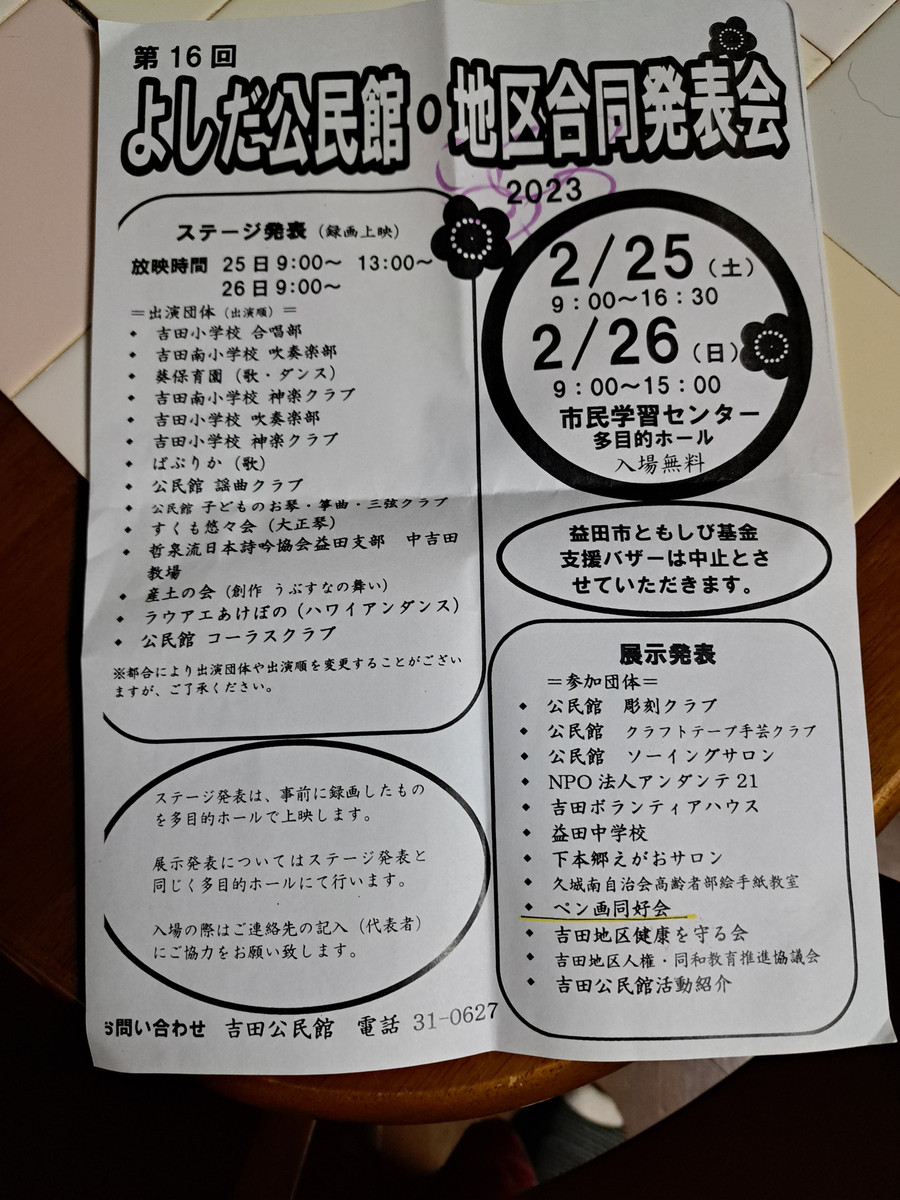 第16回
よしだ公民館・地区合同発表会
2023
ステージ発表（録画上映）
放映時間 25日9:00～ 13:00～
26日9:00～
＝出演団体（出演順）＝
◆ 吉田小学校 合唱部
◆ 吉田南小学校 吹奏楽部
◆ 葵保育園（歌・ダンス）
◆ 吉田南小学校 神楽クラブ
◆ 吉田小学校 吹奏楽部
◆ 吉田小学校 神楽クラブ
◆ ぱぷりか（歌）
◆ 公民館 謡曲クラブ
◆ 公民館 子どものお琴・箏曲・三弦クラブ
◆ すくも悠々会（大正琴）
◆ 哲泉流日本詩吟協会益田支部 中吉田
教場
◆ 産土の会（創作 うぶすなの舞い）
◆ ラウアエあけぼの（ハワイアンダンス）
◆ 公民館 コーラスクラブ
※都合により出演団体や出演順を変更することがござい
ますが、ご了承ください。
ステージ発表は、事前に録画したもの
を多目的ホールで上映します。
展示発表についてはステージ発表と
同じく多目的ホールにて行います。
入場の際はご連絡先の記入（代表者）
にご協力をお願い致します。
2/25（土）
9：00～16：30
2/26（日）
9：00～15：00
市民学習センター
多目的ホール
入場無料
益田市ともしび基金
支援バザーは中止とさ
せていただきます。
展示発表
＝参加団体＝
◆ 公民館 彫刻クラブ
◆ 公民館 クラフトテープ手芸クラブ
◆ 公民館 ソーイングサロン
◆ NPO法人アンダンテ21
◆ 吉田ボランティアハウス
◆ 益田中学校
◆ 下本郷えがおサロン
◆ 久城南自治会高齢者部絵手紙教室
◆ ペン画同好会
◆ 吉田地区健康を守る会
◆ 吉田地区人権・同和教育推進協議会
◆ 吉田公民館活動紹介
お問い合わせ 吉田公民館 電話 31-0627